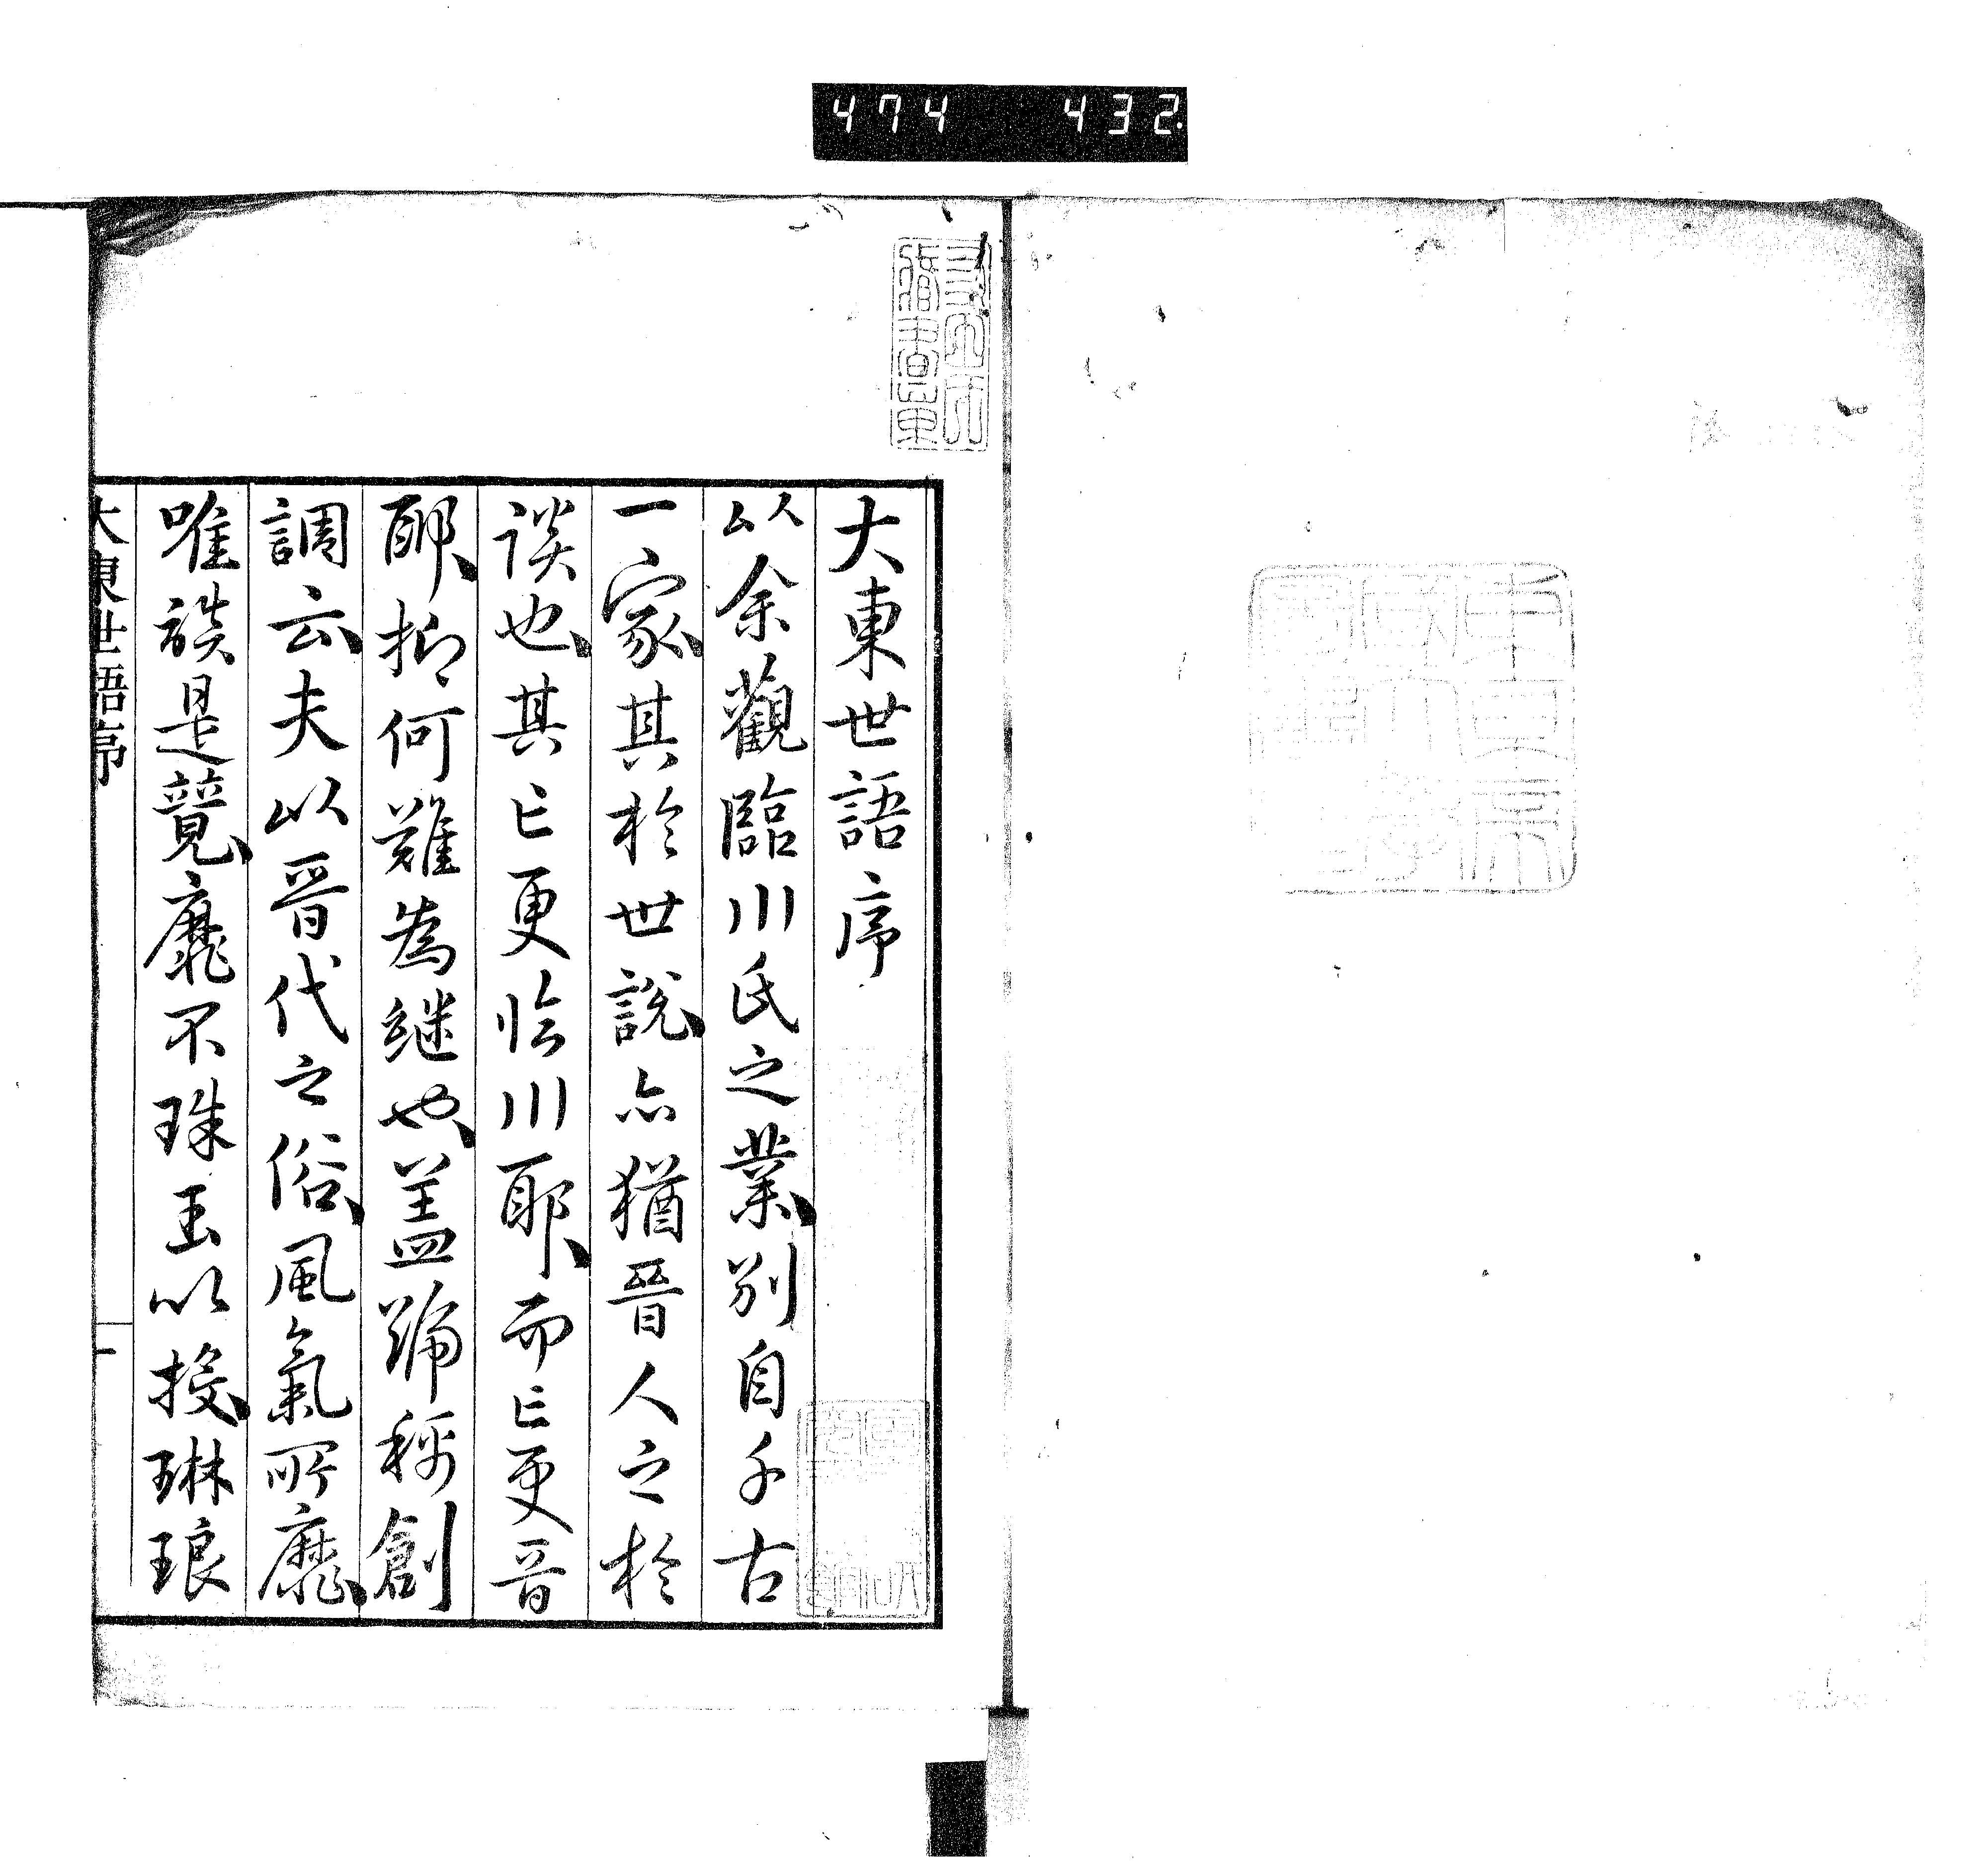 474 432
大東世語序
以余觀臨川氏之業別自千古
一家其於世說亦猶晉人之於
談也其亡更臨川耶而亡更晉
耶抑何難為継也盖踊稱創
調云夫以晉代之俗風氣所靡
唯談是競靡不珠玉以投琳琅
大東世語序
一